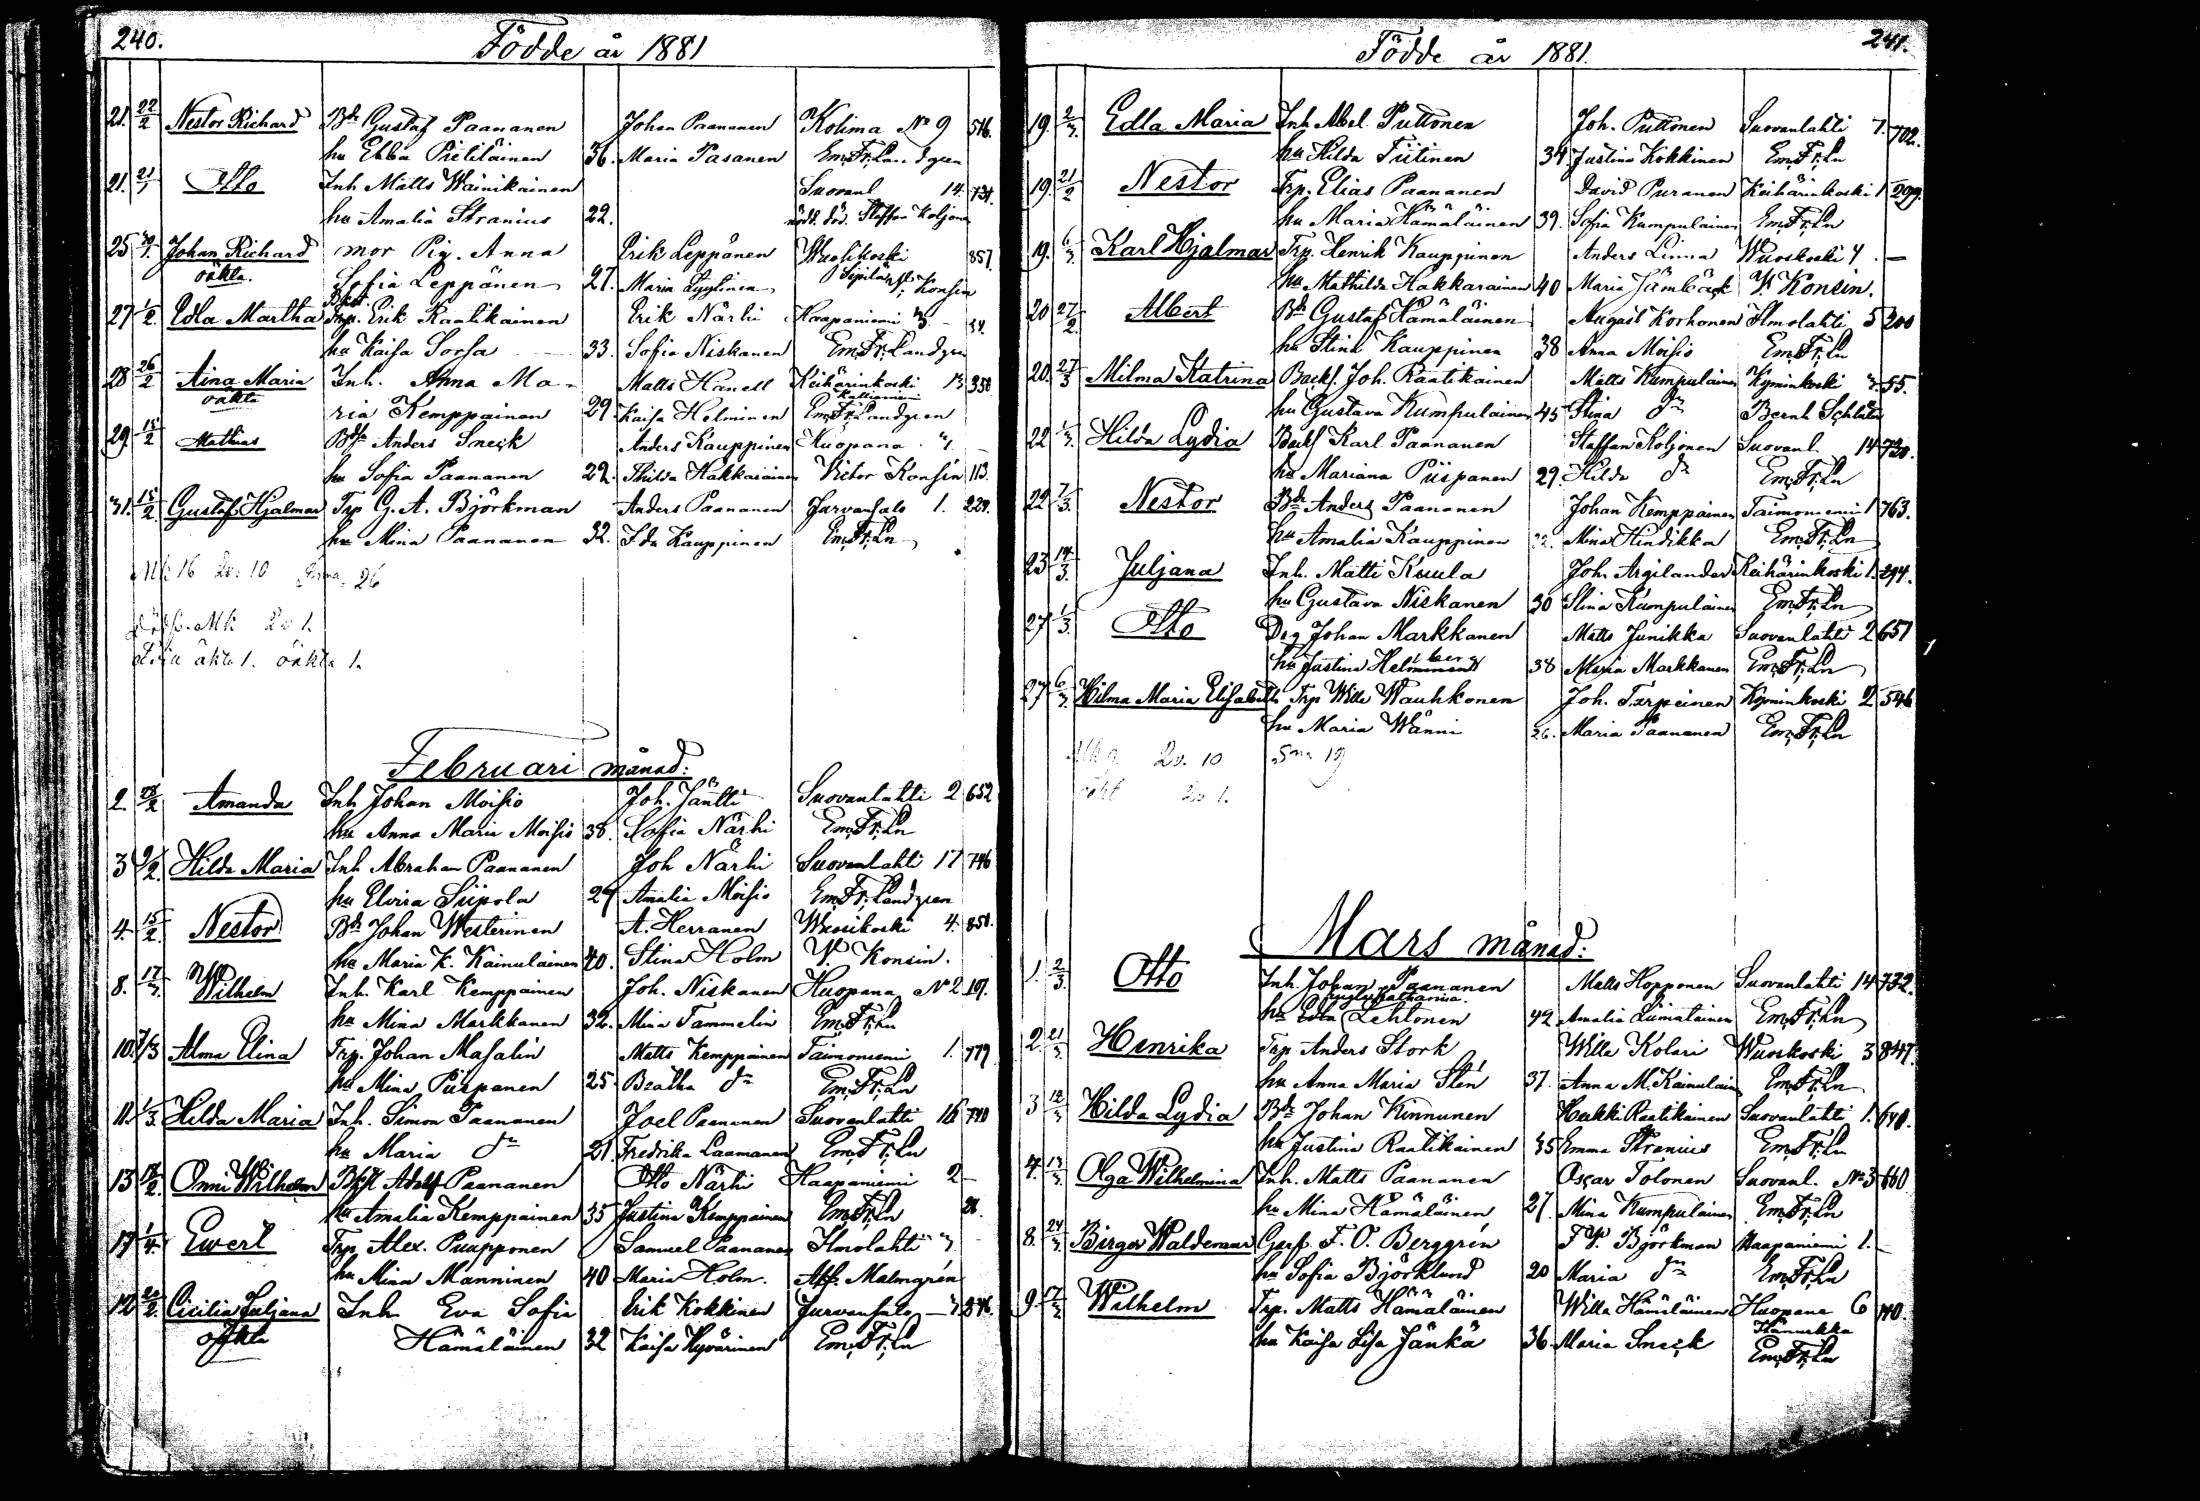 240.
Födde år 1881
21. 22/2 Nestor Richard Bd Gustaf Paananen Johan Paananen Kolima No 9 546.
hu Ebba Pieliläinen 36. Maria Pasanen Em. Fr. Landgren
21. 21/1 Otto Inh Matts Wainikainen Suovanl 14. 731.
hu Amalia Stranius 22. nödd. död. Staffan Koljonen
25 Johan Richard mor Pig. Anna Erik Leppänen Wuoskoski 857
oäkta. Sofia Leppänen 27. Maria Lyytinen V. Konsin
27 1/2. Edla Martha Trp. Erik Raatikainen Erik Närhi Haapaniemi 3 34.
hu Kaisa Sorsa 33. Sofia Niskanen Em. Fr. Landgren
28 26/2 Aina Maria Inh. Anna Ma- Matts Hanell Keihärinkoski 13 350
oäkta ria Kemppainen 29. Kaisa Helminen Em. Fr. Landgren
29 15/2 Mathias Bds Anders Sneck Anders Kauppinen Huopana 7.
hu Sofia Paananen 22. Thilda Hakkarainen Victor Konsin 113.
31. 15/2 Gustaf Hjalmar Trp G. A. Björkman Anders Paananen Jarvansalo 1. 229.
hu Mina Paananen 32. Ida Kauppinen Em. Fr. Ln
Mk 16 Qv. 10 Sma 26
dödf. Mk Qv 1.
äkta 1. oäkta 1.
Februari månad:
2. 28/2 Amanda Inh Johan Moisio Joh. Jäntti Suovanlahti 2 652
hu Anna Maria Moisio 38. Sofia Närhi Em. Fr. Ln
3 9/2. Hilda Maria Inh Abraham Paananen Joh Närhi Suovanlahti 17 746
hu Elvira Siipola 29 Amalia Moisio Em. Fr. Landgren
4. 15/2. Nestor Bd Johan Westerinen A. Herranen Wuoskoski 4. 850.
hu Maria K. Kainulainen 40. Stina Holm V. Konsin.
8. 17/3. Wilhelm Inh. Karl Kemppainen Joh. Niskanen Huopana No 2 19.
hu Mina Markkanen 32. Mina Tammelin Em. Fr. Ln
10. 7/3 Alma Elina Trp. Johan Masalin Matts Kemppainen Taimoniemi 1. 779
hu Mina Piispanen 25. Beatha do Em. Fr. Ln
11. 1/3. Hilda Maria Inh. Simon Paananen Joel Paananen Suovanlahti 16 740
hu Maria do 21. Fredrika Laamanen Em. Fr. Ln
13 18/2. Onni Wilhelm Bfst Adolf Paananen Otto Närhi Haapaniemi 2
hu Amalia Kemppainen 35 Justina Kemppainen Em. Fr. Ln 28.
17 1/4. Ewert Trp. Alex. Puupponen Samuel Paananen Ilmolahti 3
hu Mina Manninen 40 Maria Holm. Alf. Malmgrén
12 20/2. Cicilia Juljana Inh Eva Sofia Erik Kokkinen Jurvansalo 3. 346.
oäkta Hämäläinen 32 Kaisa Hyvärinen Em. Fr. Ln
241.
Födde år 1881.
19. 2/3. Edla Maria Inh Abel Puttonen Joh. Puttonen Suovanlahti 7. 702.
hu Hilda Tiitinen 34 Justina Kokkinen Em. Fr. Ln
19. 21/2 Nestor Trp. Elias Paananen David Puranen Keihärinkoski 1 299.
hu Maria Hämäläinen 39. Sofia Kumpulainen Em. Fr. Ln
19. 6/3 Karl Hjalmar Trp. Henrik Kauppinen Anders Linna Wuoskoski 4. —
hu Mathilda Hakkarainen 40 Maria Jämbäck V. Konsin.
20 27/2. Albert Bd Gustaf Hämäläinen August Korhonen Ilmolahti 5 200
hu Stina Kauppinen 38 Anna Moisio Em. Fr. Ln
20. 27/3 Milma Katrina Backs. Joh. Raatikainen Matts Kumpulainen Kyminkoski 3. 55.
hu Gustava Kumpulainen 45 Stina do Bernh Schlüter
22 1/3. Hilda Lydia Backs Karl Paananen Staffan Koljonen Suovanl. 14 720.
hu Mariana Piispanen 29. Hilda do Em. Fr. Ln
22 7/3. Nestor Bd Anders Paananen Johan Kemppainen Taimoniemi 1 763.
hu Amalia Kauppinen 32. Mina Hindikka Em. Fr. Ln
23 14/3. Juljana Inh. Matti Kuula Joh. Argilander Keihärinkoski 1. 294.
hu Gustava Niskanen 30 Stina Kumpulainen Em. Fr. Ln
27 1/3. Otto Drg Johan Markkanen Matts Junikka Suovanlahti 2 651
hu Justina Helminen 38 Maria Markkanen Em. Fr. Ln
27. 6/3. Hilma Maria Elisabeth Trp Wille Wauhkonen Joh. Terpeinen Kyminkoski 2 546
hu Maria Wänni 26. Maria Paananen Em. Fr. Ln
Mk 9 Qv. 10 Sma 19
oäkt Qv 1.
Mars månad:
1. 2/3. Otto Inh. Johan Paananen Matts Hopponen Suovanlahti 14 732.
hu Lehtonen 42 Amalia Liimatainen Em. Fr. Ln
2. 21/3 Henrika Trp Anders Stork Wille Kolari Wuoskoski 3 847.
hu Anna Maria Stén 37. Anna M. Kainulainen Em. Fr. Ln
3 12/3 Hilda Lydia Bd Johan Kinnunen Heikki Raatikainen Suovanlahti 1. 640.
hu Justina Raatikainen 35 Emma Stranius Em. Fr. Ln
7. 13/3. Olga Wilhelmina Inh. Matts Paananen Oscar Tolonen Suovanl. No 3 660
hu Mina Hämäläinen 27. Mina Kumpulainen Em. Fr. Ln
8. 24/3 Birger Waldemar Garf. F. O. Berggrén F V. Björkman Haapaniemi 1. —
hu Sofia Björklund 20 Maria do Em. Fr. Ln
9. 17/3 Wilhelm Trp. Matts Hämäläinen Wille Hämäläinen Huopana 6 140.
hu Kaisa Lisa Jänkä 36. Maria Sneck Em. Fr. Ln